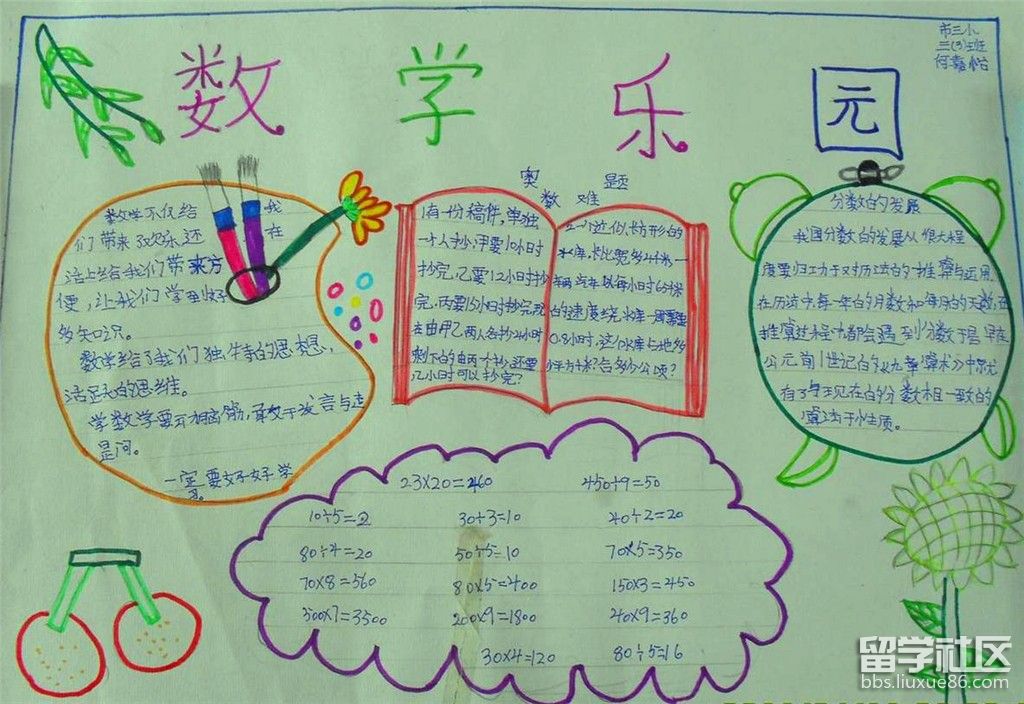 市三小
三(3)班
何嘉怡
数学乐园
数学不仅给我
们带来欢乐,还在
活上给我们带来方
便,让我们学到好
多知识。
数学给了我们独特的思想,
活跃的思维。
学数学要云力脑筋,敢于发言与追
是问。
一定要好好学
习。
奥数难题
1有一份稿件,单独
一个人抄,甲要10小时
抄完,乙要12小时抄
完,丙要15小时抄完现
去由甲乙两人各抄2小时
剩下的由两个抄,还要
几小时可以抄完?
2一个近似长方形的
水库,长比宽多24米一
辆汽车以每小时6米
的速度绕水库一周需要
0.8小时,这个水库占地多
少平方千米?合多少公顷?
分数的发展
我国分数的发展从很大程
度要归功于对历法的推算与运用
在历法中,每一年的月数和每月的天数在
推算过程中都会遇到分数于早在
公元前1世记的《九章算术》中就
有了与于现在的分数相一致的
算法于性质。
23×20=460 450÷9=50
10÷5=2 30÷3=10 40÷2=20
80÷4=20 50÷5=10 70×5=350
70×8=560 80×5=400 150×3=450
500×7=3500 200×9=1800 40×9=360
30×4=120 80÷5=16
留学社区
bbs.liuxue86.com